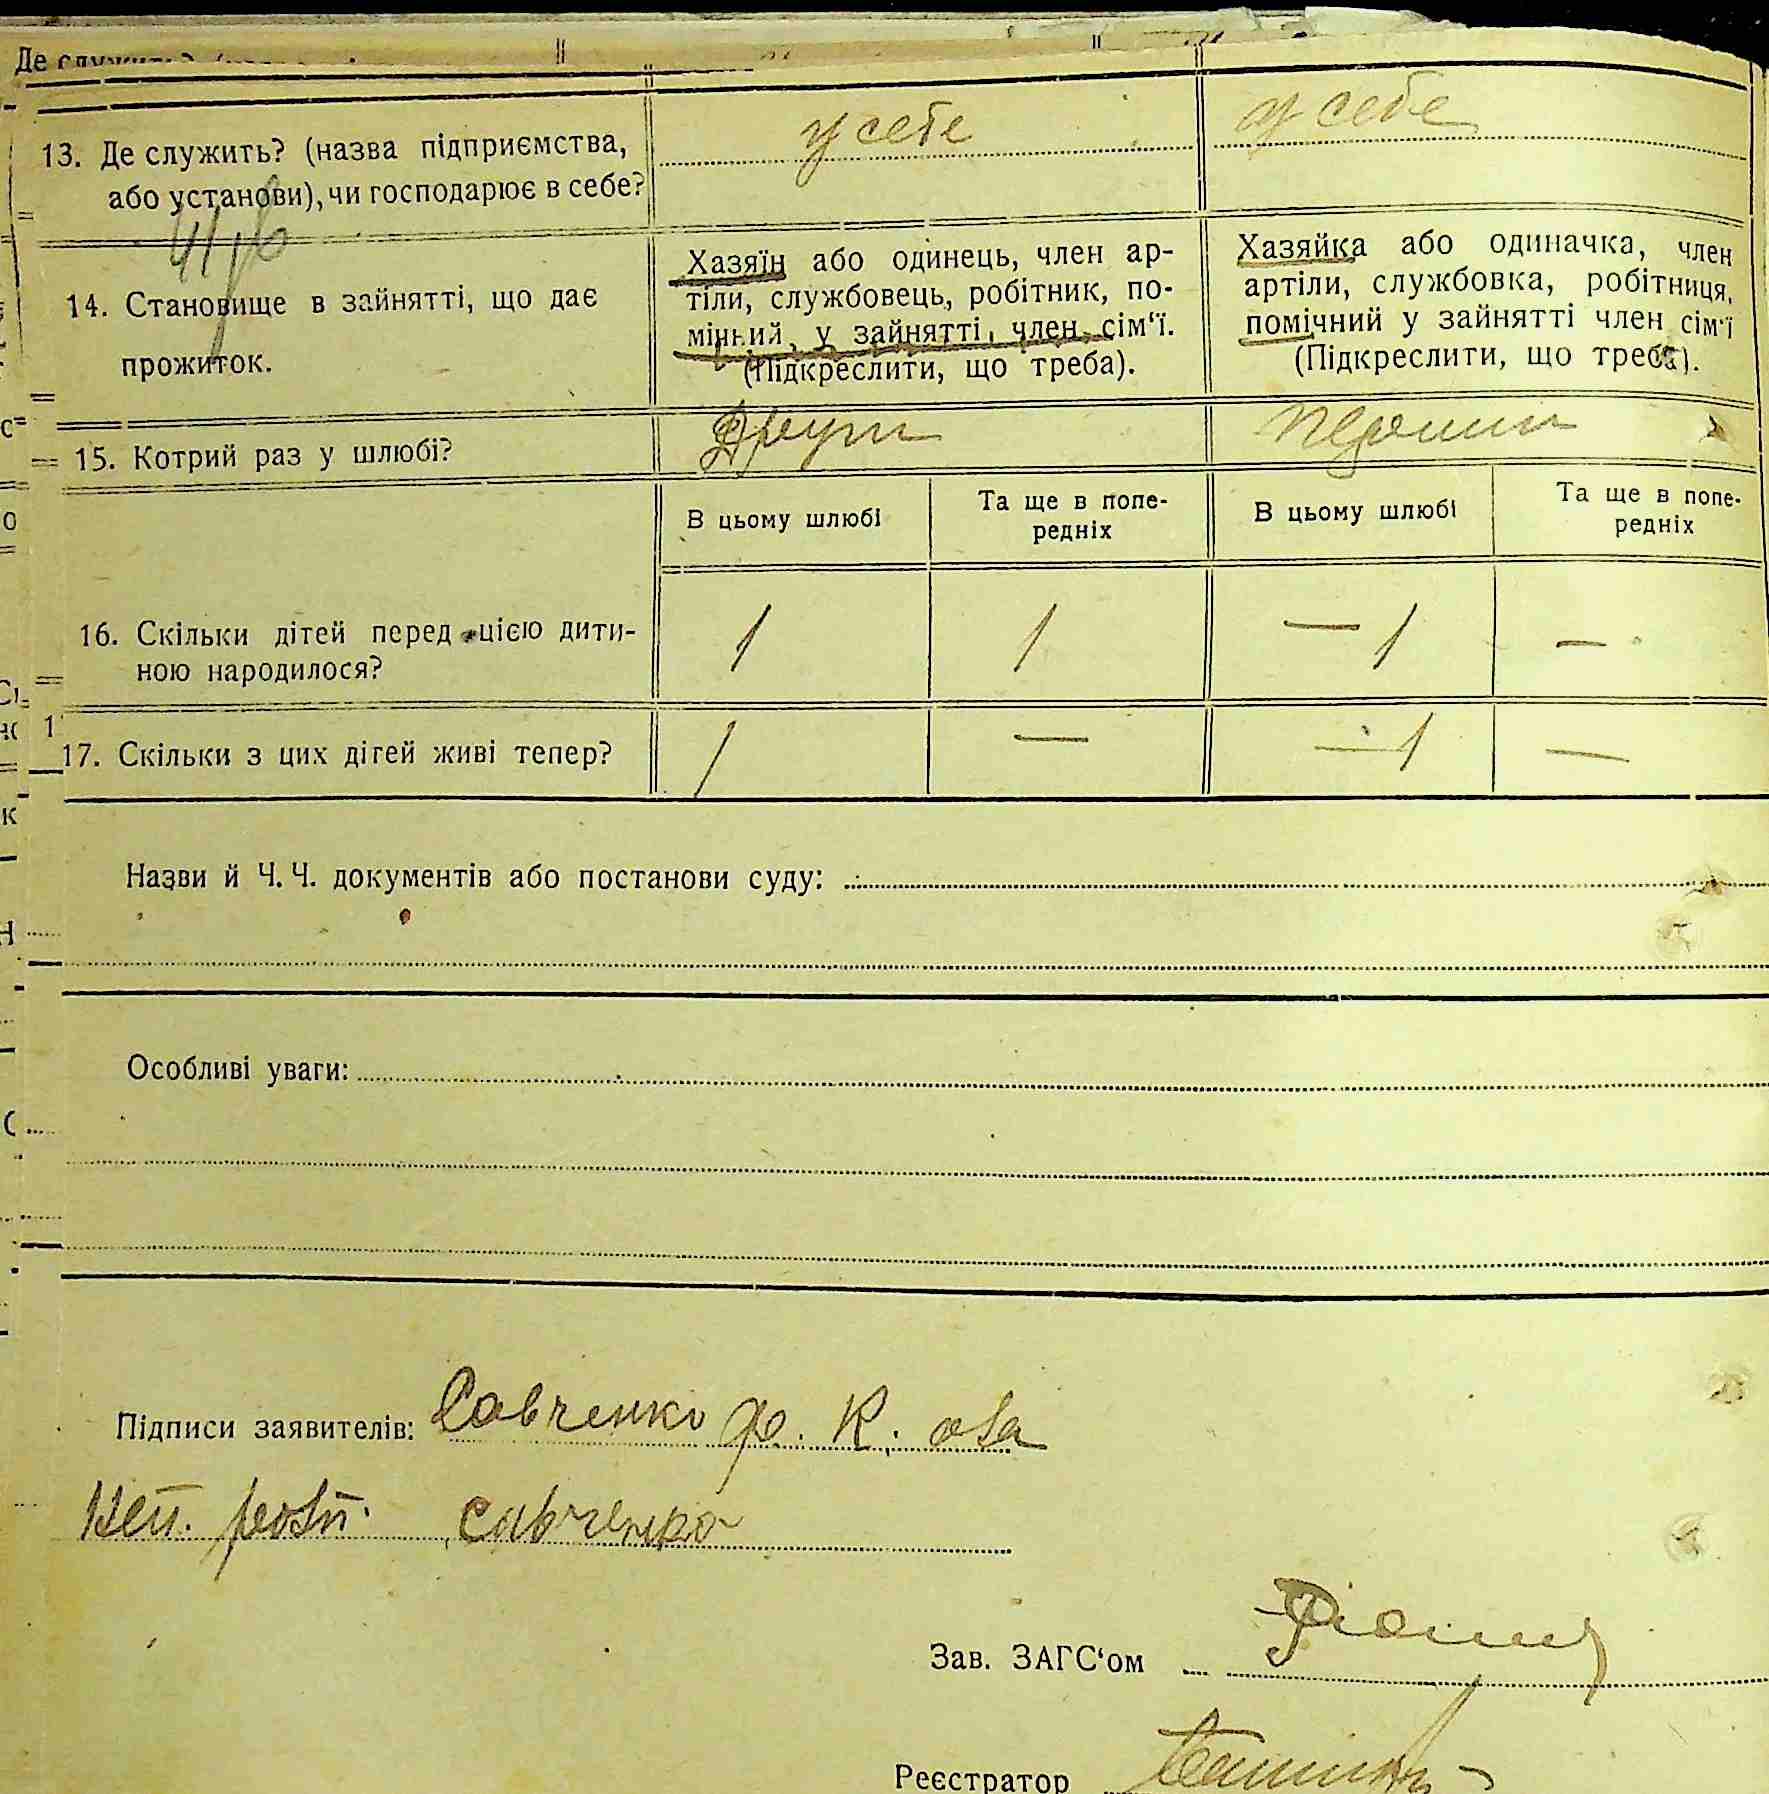 Де служить?
13. Де служить? (назва підприємства, або установи), чи господарює в себе?
у себе
у себе
14. Становище в зайнятті, що дає прожиток.
Хазяїн або одинець, член ар-
тіли, службовець, робітник, по-
мічний у зайнятті член сім'ї.
(Підкреслити, що треба).
Хазяйка або одиначка, член
артіли, службовка, робітниця,
помічний у зайнятті член сім'ї
(Підкреслити, що треба).
15. Котрий раз у шлюбі?
Другий
Перший
В цьому шлюбі
Та ще в попе-
редніх
В цьому шлюбі
Та ще в попе-
редніх
16. Скільки дітей перед цією дити-
ною народилося?
1
1
— 1
—
17. Скільки з цих дітей живі тепер?
1
—
— 1
—
Назви й Ч. Ч. документів або постанови суду:
Особливі уваги:
Підписи заявителів: Савченко Ф. К. оба
Неп. розп. Савченко
Зав. ЗАГС'ом
Реєстратор